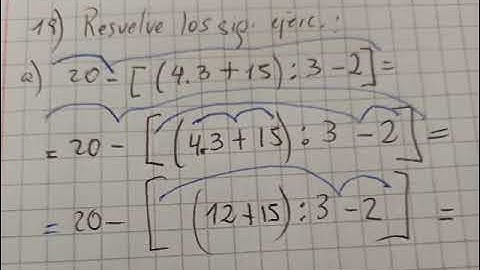 18) Resuelve los sig. ejerc.:
a) 20 - [(4.3 + 15) : 3 - 2] =
= 20 - [(4.3 + 15) : 3 - 2] =
= 20 - [(12 + 15) : 3 - 2] =